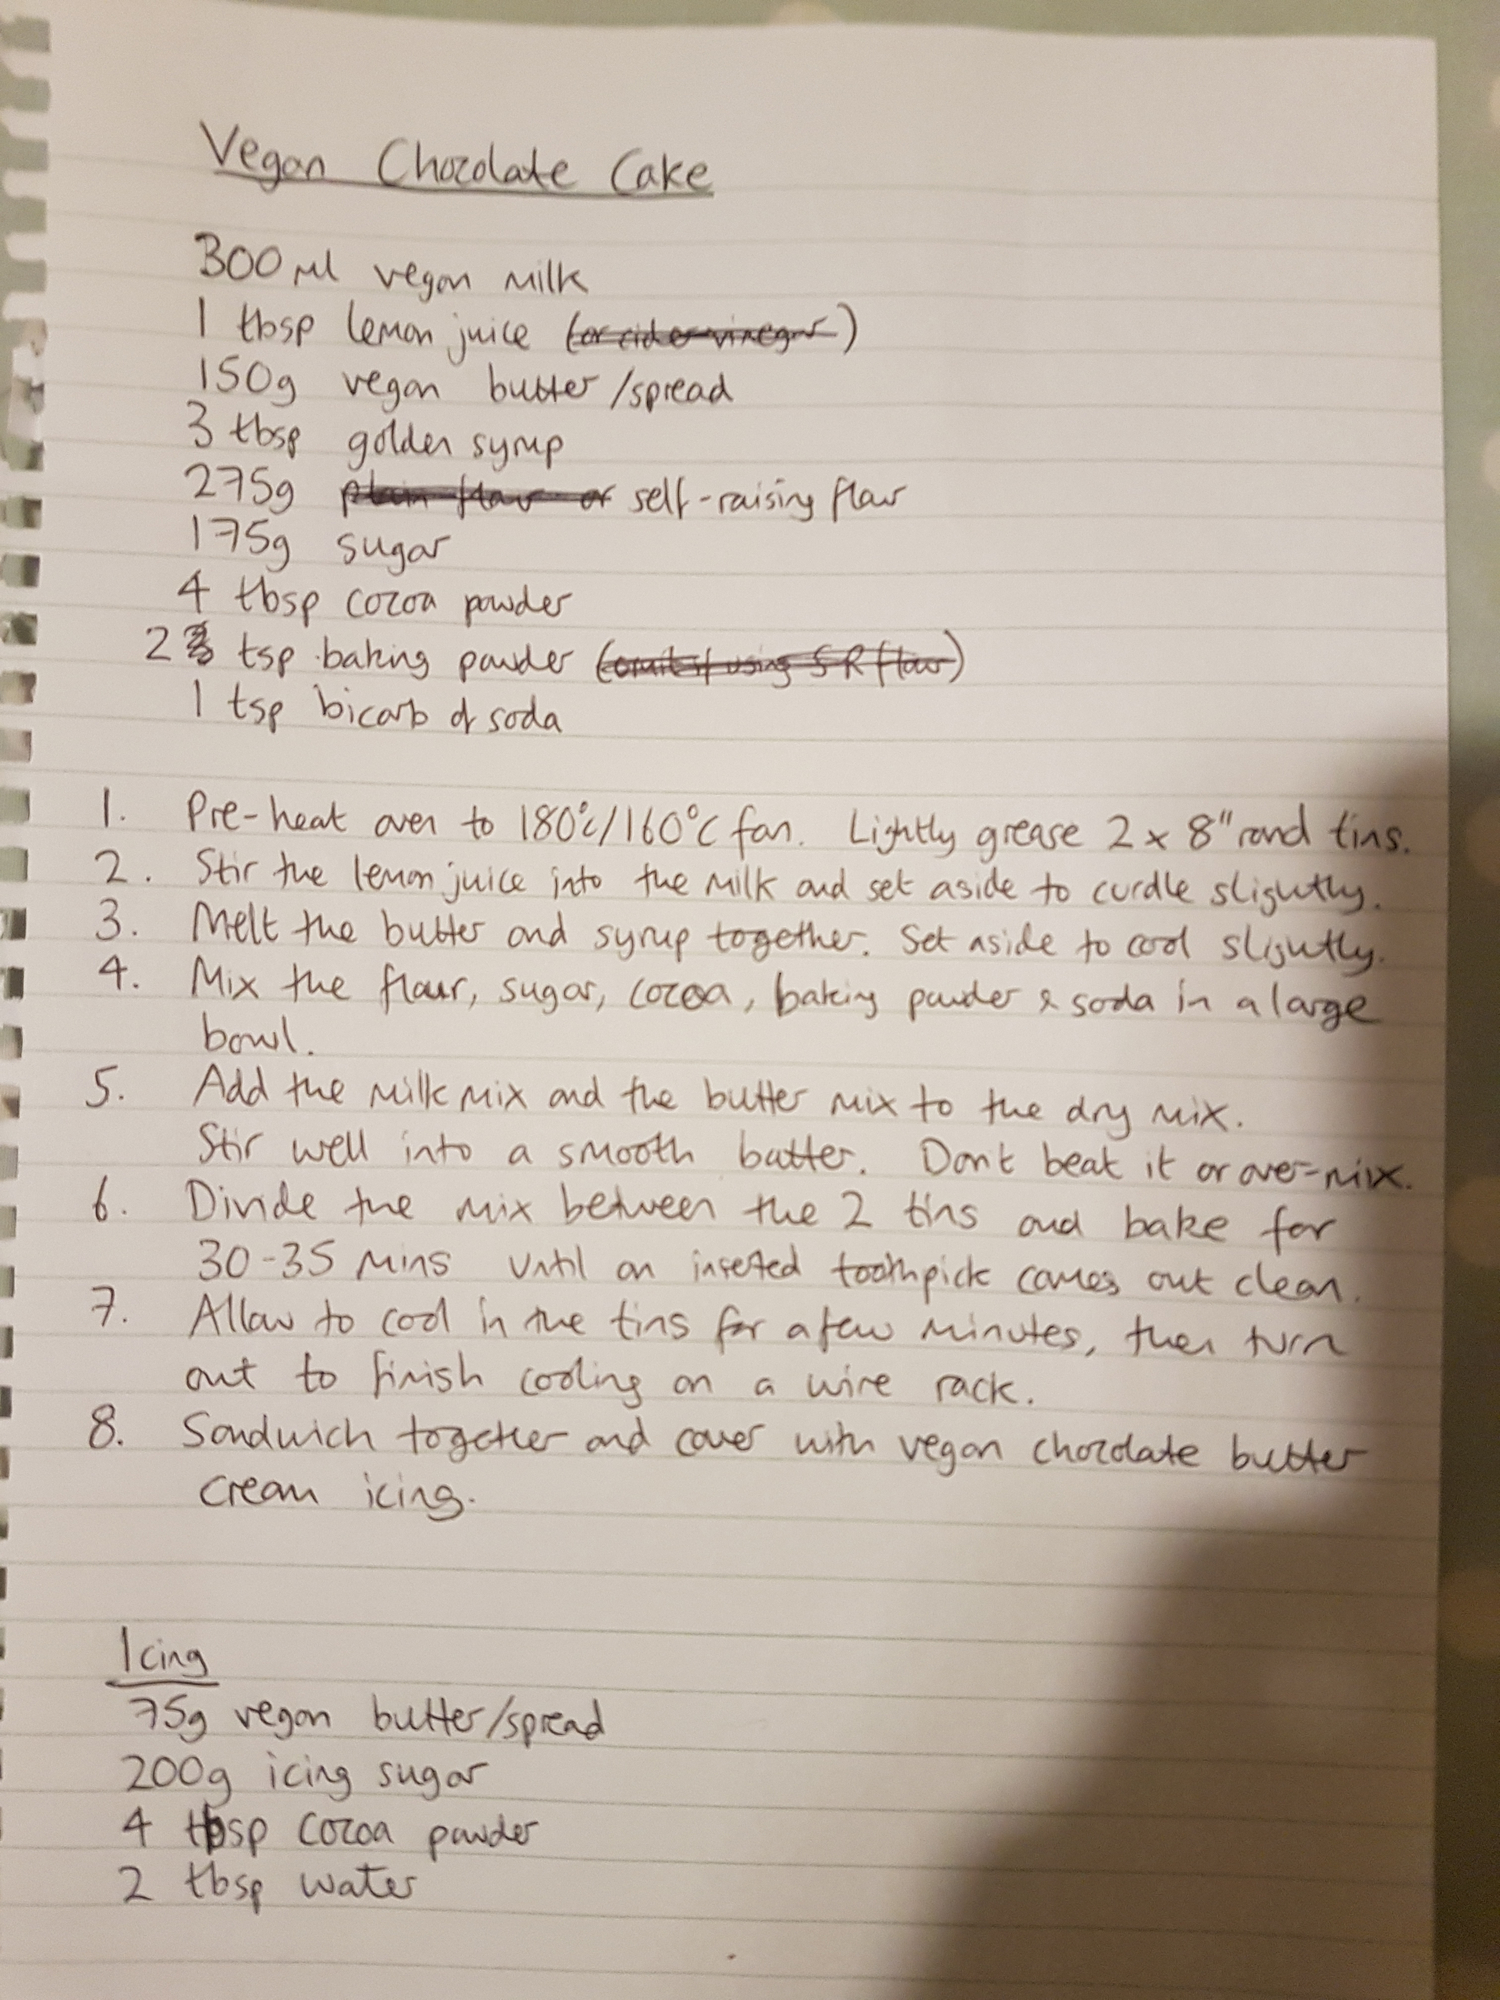 Vegan Chocolate Cake
300ml vegan milk
1 tbsp lemon juice (or cider vinegar)
150g vegan butter/spread
3 tbsp golden syrup
275g plain flour or self-raising flour
175g sugar
4 tbsp cocoa powder
2 3 tsp baking powder (omit if using SR flour)
1 tsp bicarb of soda
1. Pre-heat oven to 180°c/160°C fan. Lightly grease 2 x 8" round tins.
2. Stir the lemon juice into the milk and set aside to curdle slightly.
3. Melt the butter and syrup together. Set aside to cool slightly.
4. Mix the flour, sugar, cocoa, baking powder & soda in a large
bowl.
5. Add the milk mix and the butter mix to the dry mix.
Stir well into a smooth batter. Don't beat it or over-mix.
6. Divide the mix between the 2 tins and bake for
30-35 mins until an inserted toothpick comes out clean.
7. Allow to cool in the tins for a few minutes, then turn
out to finish cooling on a wire rack.
8. Sandwich together and cover with vegan chocolate butter
cream icing.
Icing
75g vegan butter/spread
200g icing sugar
4 tbsp cocoa powder
2 tbsp water